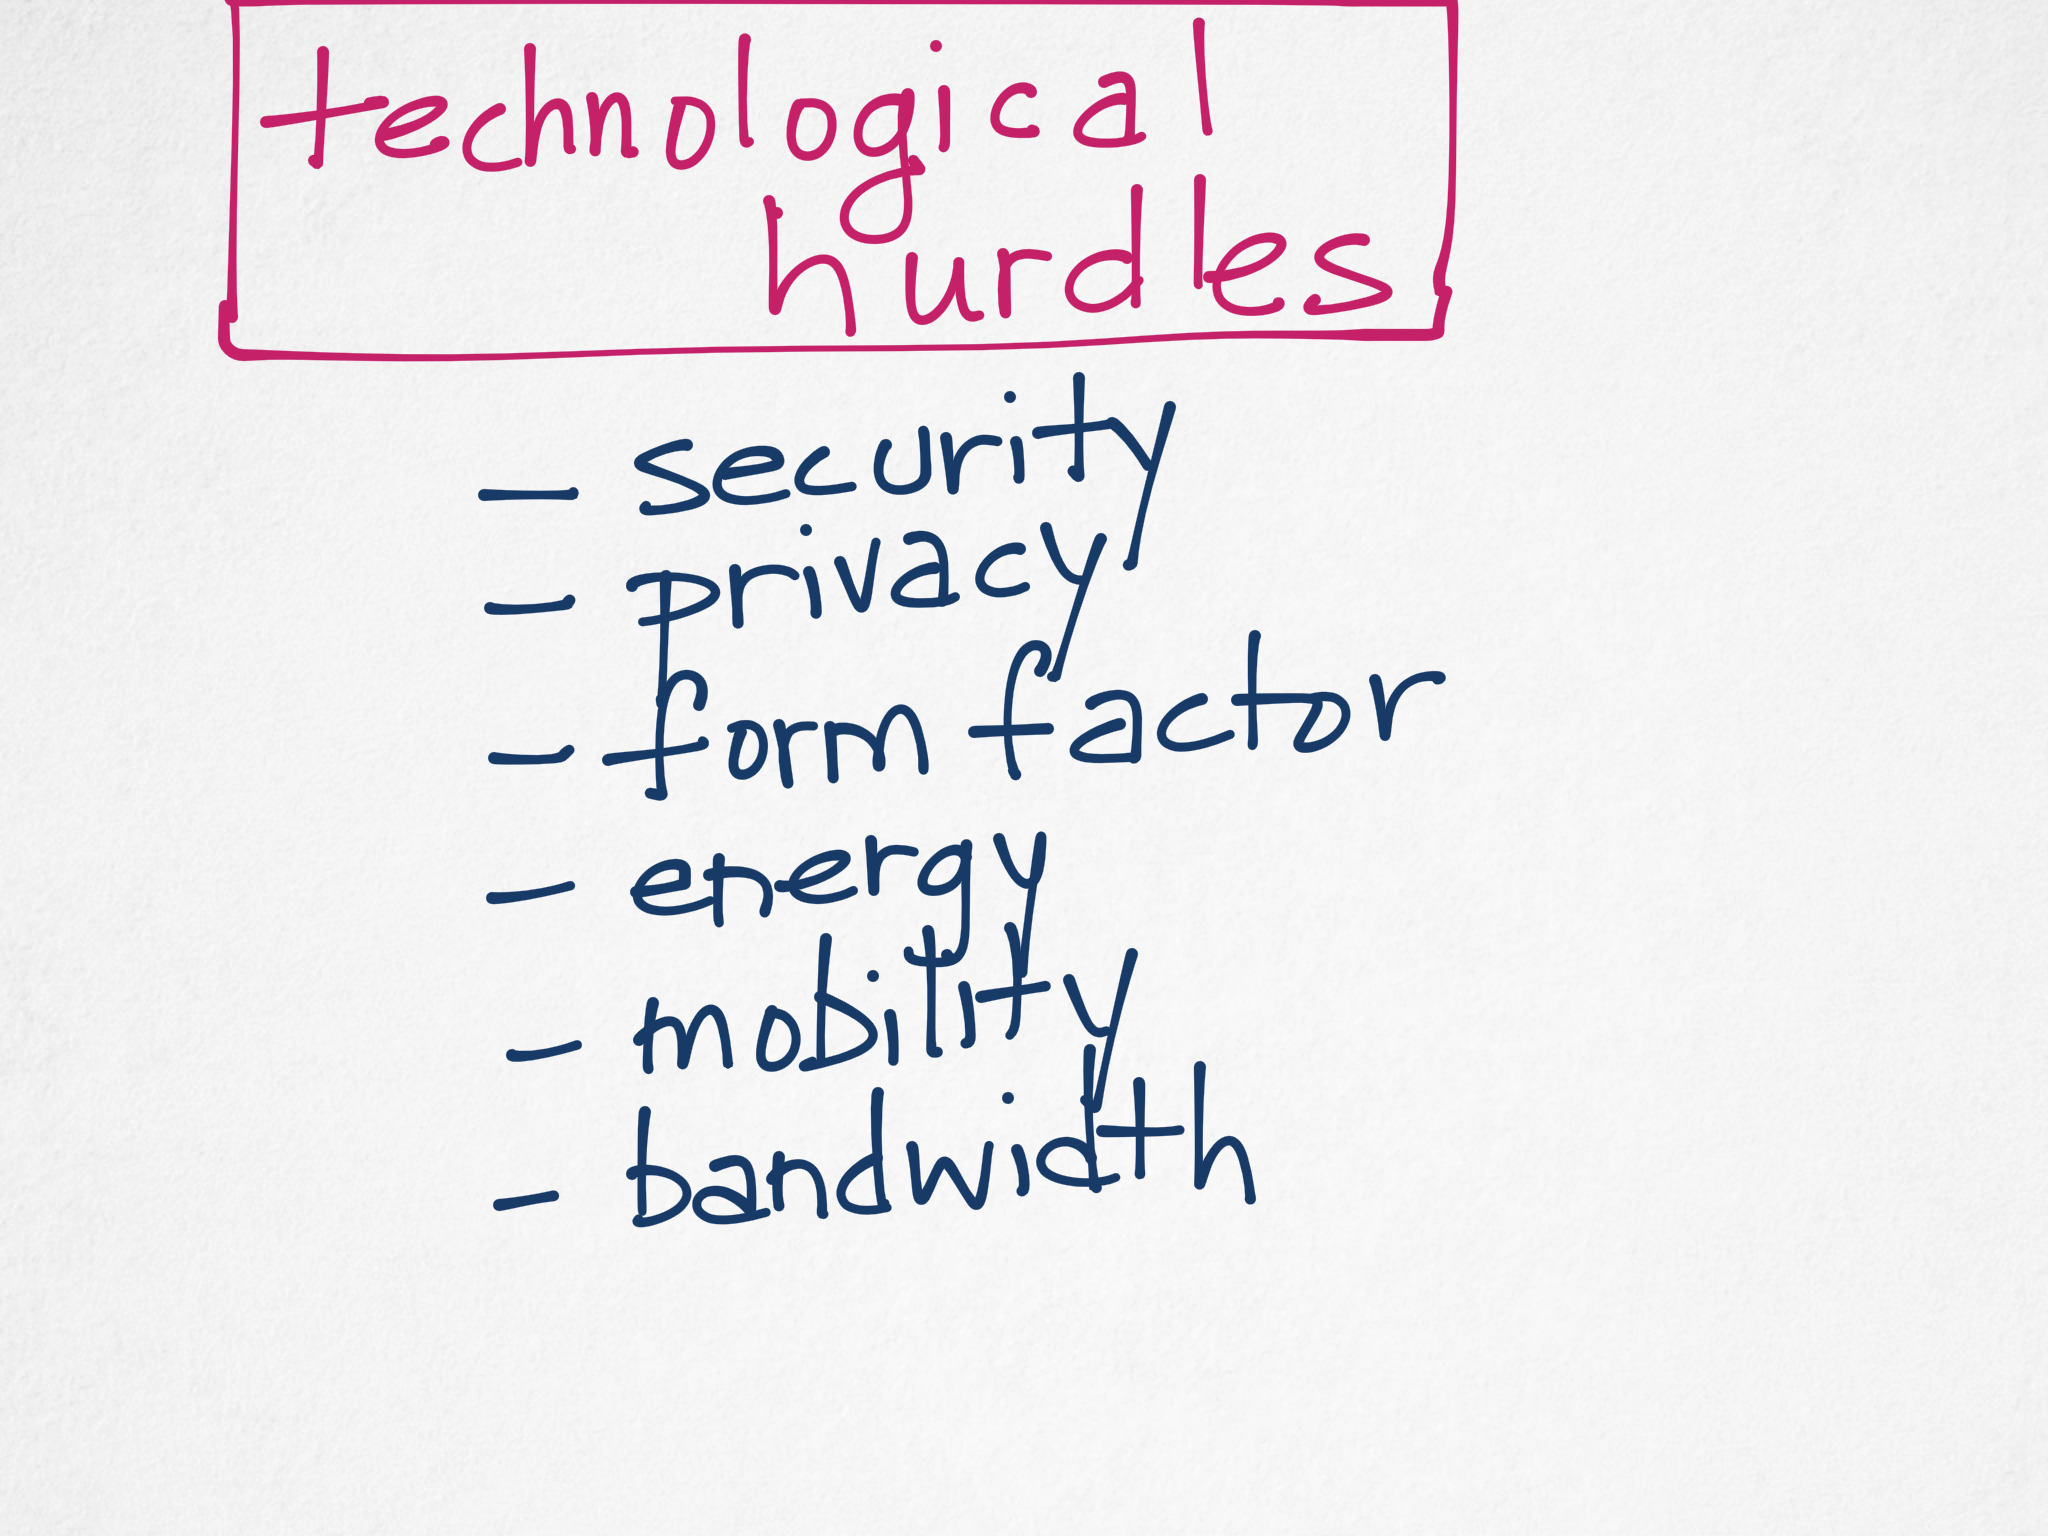 technological
hurdles
- security
- privacy
- form factor
- energy
- mobility
- bandwidth